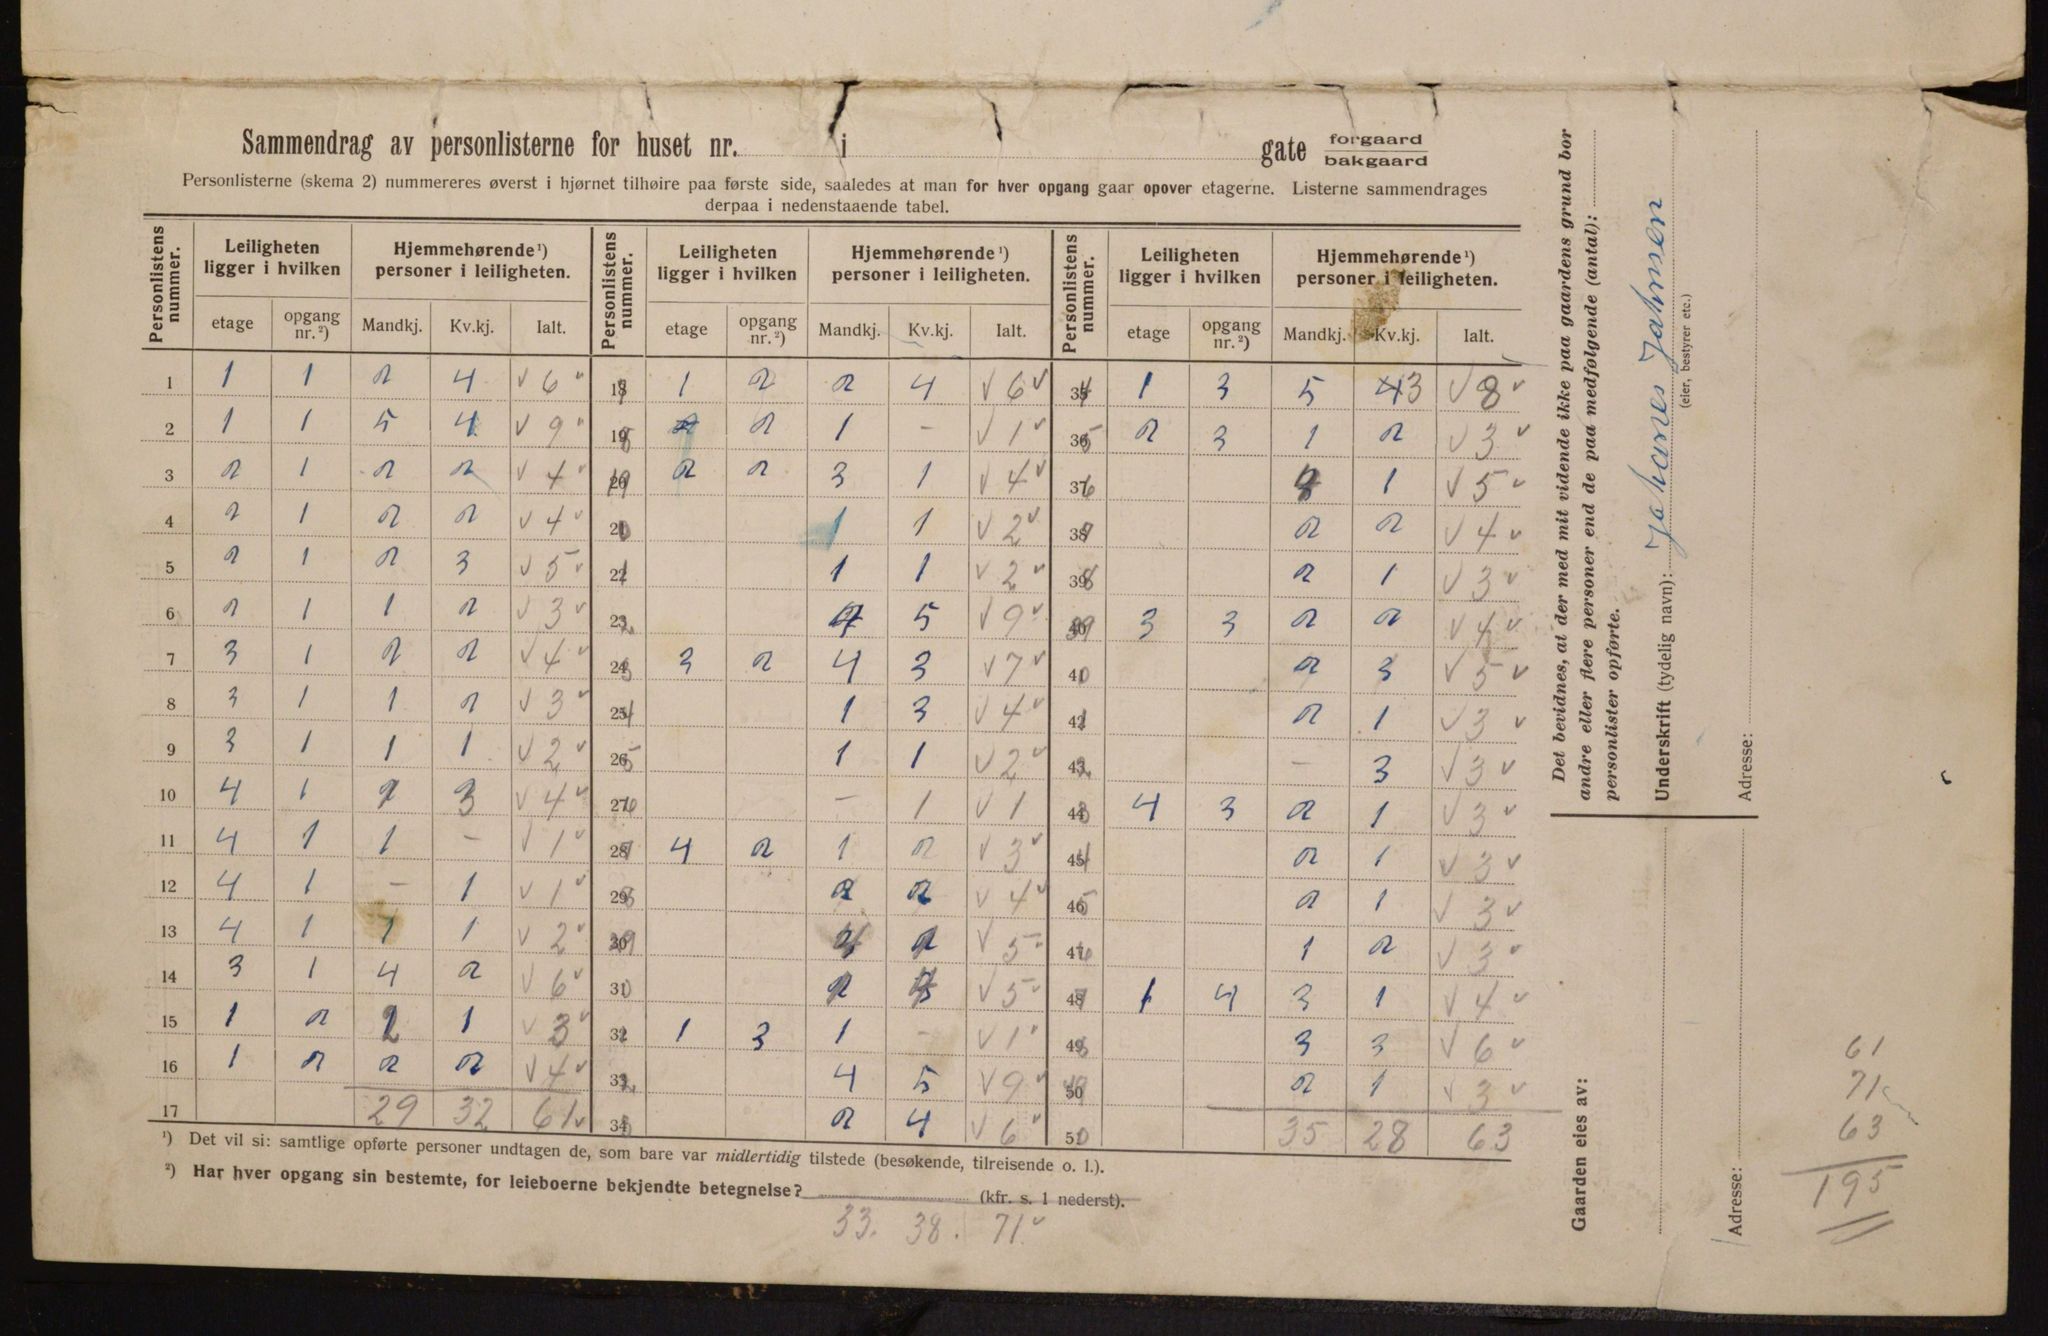 Sammendrag av personlisterne for huset nr. i gate forgaard bakgaard
Personlisterne (skema 2) nummereres øverst i hjørnet tilhøire paa første side, saaledes at man for hver opgang gaar opover etagerne. Listerne sammendrages
derpaa i nedenstaaende tabel.
Personlistens nummer. Leiligheten ligger i hvilken Hjemmehørende ¹) personer i leiligheten. Personlistens nummer. Leiligheten ligger i hvilken Hjemmehørende ¹) personer i leiligheten. Personlistens nummer. Leiligheten ligger i hvilken Hjemmehørende ¹) personer i leiligheten.
etage opgang nr. ²) Mandkj. Kv.kj. Ialt. etage opgang nr. ²) Mandkj. Kv.kj. Ialt. etage opgang nr. ²) Mandkj. Kv.kj. Ialt.
1 1 1 2 4 √ 6 v 18 1 2 2 4 √ 6 v 35 1 3 5 3 √ 8 v
2 1 1 5 4 √ 9 v 19 2 1 - √ 1 v 36 2 3 1 2 √ 3 v
3 2 1 2 2 √ 4 v 20 2 2 3 1 √ 4 v 37 1 √ 5 v
4 2 1 2 2 √ 4 v 21 1 1 √ 2 v 38 2 2 √ 4 v
5 2 1 2 3 √ 5 v 22 1 1 √ 2 v 39 2 1 √ 3 v
6 2 1 1 2 √ 3 v 23 4 5 √ 9 v 40 3 3 2 2 √ 4 v
7 3 1 2 2 √ 4 v 24 3 2 4 3 √ 7 v 41 2 3 √ 5 v
8 3 1 1 2 √ 3 v 25 1 3 √ 4 v 42 2 1 √ 3 v
9 3 1 1 1 √ 2 v 26 1 1 √ 2 v 43 - 3 √ 3 v
10 4 1 3 √ 4 v 27 - 1 √ 1 44 4 3 2 1 √ 3 v
11 4 1 1 - √ 1 v 28 4 2 1 2 √ 3 v 45 2 1 √ 3 v
12 4 1 - 1 √ 1 v 29 2 2 √ 4 v 46 2 1 √ 3 v
13 4 1 1 1 √ 2 v 30 √ 5 v 47 1 2 √ 3 v
14 3 1 4 2 √ 6 v 31 √ 5 v 48 1 4 3 1 √ 4 v
15 1 2 2 1 √ 3 v 32 1 3 1 - √ 1 v 49 3 3 √ 6 v
16 1 2 2 2 √ 4 v 33 4 5 √ 9 v 50 2 1 √ 3 v
17 29 32 61 v 34 2 4 √ 6 v 51 35 28 63
¹) Det vil si: samtlige opførte personer undtagen de, som bare var midlertidig tilstede (besøkende, tilreisende o. l.).
²) Har hver opgang sin bestemte, for leieboerne bekjendte betegnelse? (kfr. s. 1 nederst).
33. 38. 71 v
Det bevidnes, at der med mit vidende ikke paa gaardens grund bor
andre eller flere personer end de paa medfølgende (antal):
personlister opførte.
Underskrift (tydelig navn): Johanes Johnsen
(eier, bestyrer etc.)
Adresse:
Gaarden eies av:
Adresse:
61
71
63
195